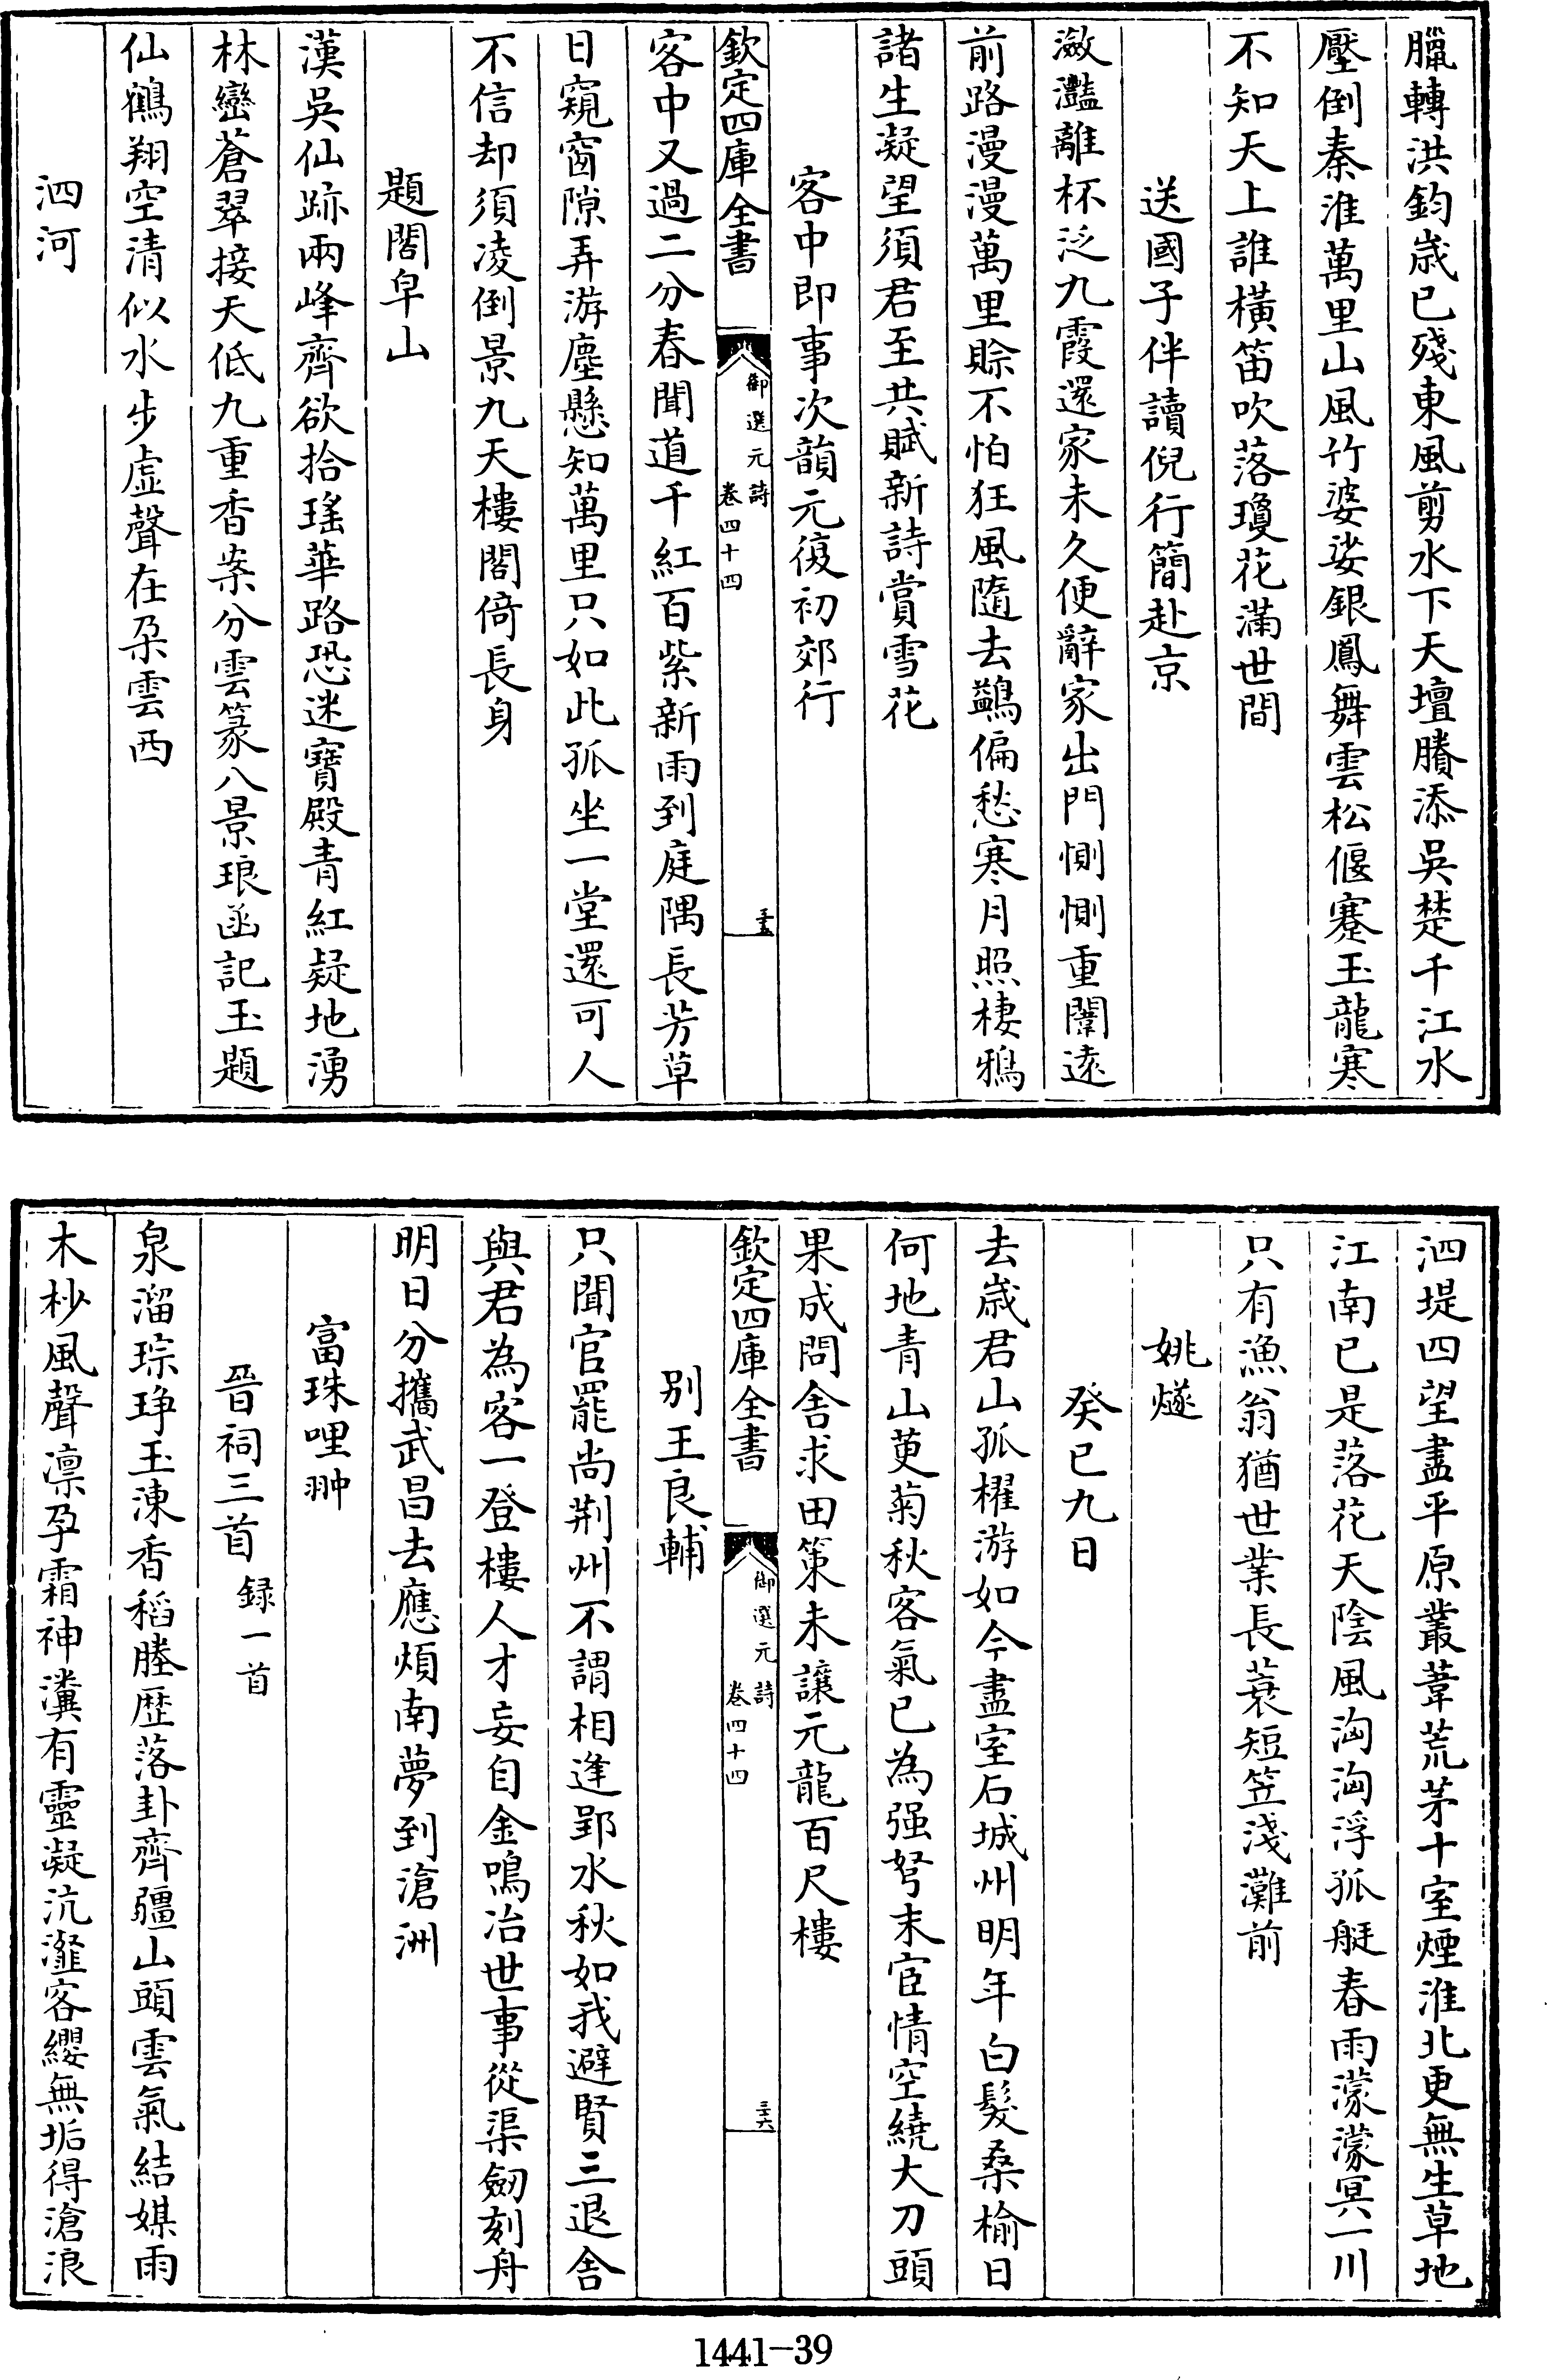 臘轉洪鈞歲已殘東風剪水下天壇賸添吳楚千江水
壓倒秦淮萬里山風竹婆娑銀鳳舞雲松偃蹇玉龍寒
不知天上誰橫笛吹落瓊花滿世間
送國子伴讀倪行簡赴京
瀲灩離杯泛九霞還家未久便辭家出門惻惻重闈遠
前路漫漫萬里賒不怕狂風隨去鷁偏愁寒月照棲鴉
諸生凝望須君至共賦新詩賞雪花
客中即事次韻元復初郊行
欽定四庫全書
御選元詩
卷四十四
三十五
客中又過二分春聞道千紅百紫新雨到庭隅長芳草
日窺窗隙弄游塵懸知萬里只如此孤坐一堂還可人
不信却須凌倒景九天樓閣倚長身
題閤皁山
漢吳仙跡兩峰齊欲拾瑤華路恐迷寶殿青紅疑地湧
林巒蒼翠接天低九重香案分雲篆八景琅函記玉題
仙鶴翔空清似水步虛聲在朶雲西
泗河
泗堤四望盡平原叢葦荒茅十室煙淮北更無生草地
江南已是落花天陰風洶洶浮孤艇春雨濛濛冥一川
只有漁翁猶世業長蓑短笠淺灘前
姚燧
癸巳九日
去歲君山孤櫂游如今盡室石城州明年白髮桑榆日
何地青山萸菊秋客氣已為强弩末宦情空繞大刀頭
果成問舍求田策未讓元龍百尺樓
欽定四庫全書
御選元詩
卷四十四
三十六
别王良輔
只聞官罷尚荆州不謂相逢郢水秋如我避賢三退舍
與君為客一登樓人才妄自金鳴冶世事從渠劒刻舟
明日分攜武昌去應煩南夢到滄洲
富珠哩翀
晉祠三首 録一首
泉溜琮琤玉涷香稻塍歷落卦齊疆山頭雲氣結媒雨
木杪風聲凛孕霜神瀵有靈凝沆瀣客纓無垢得滄浪
1441-39